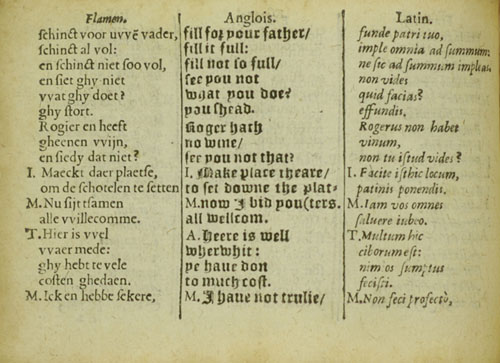 Flamen.
schinct voor uvvē vader,
schinct al vol:
en schinct niet soo vol,
en siet ghy niet
vvat ghy doet?
ghy stort.
Rogier en heeft
gheenen vvijn,
en siedy dat niet?
I. Maeckt daer plaetse,
om de schotelen te setten
M. Nu sijt tsamen
alle vvillecomme.
T. Hier is vvel
vvaer mede:
ghy hebt te vele
costen ghedaen.
M. Ick en hebbe sekere,
Anglois.
fill for your father/
fill it full:
fill not so full/
see you not
what you doe?
you shead.
Roger hath
no wine/
see you not that?
I. Make place theare/
to set downe the plat-
M. now I bid you (ters.
all wellcom.
A. Heere is well
wherwhit:
ye haue don
to much cost.
M. I haue not trulie/
Latin.
funde patri tuo,
imple omnia ad summum:
ne sic ad summum impleas
non vides
quid facias?
effundis.
Rogerus non habet
vinum,
non tu istud vides?
I. Facite isthic locum,
patinis ponendis.
M. Iam vos omnes
saluere iubeo.
T. Multum hic
ciborum est:
nimios sumptus
fecisti.
M. Non feci profectò,